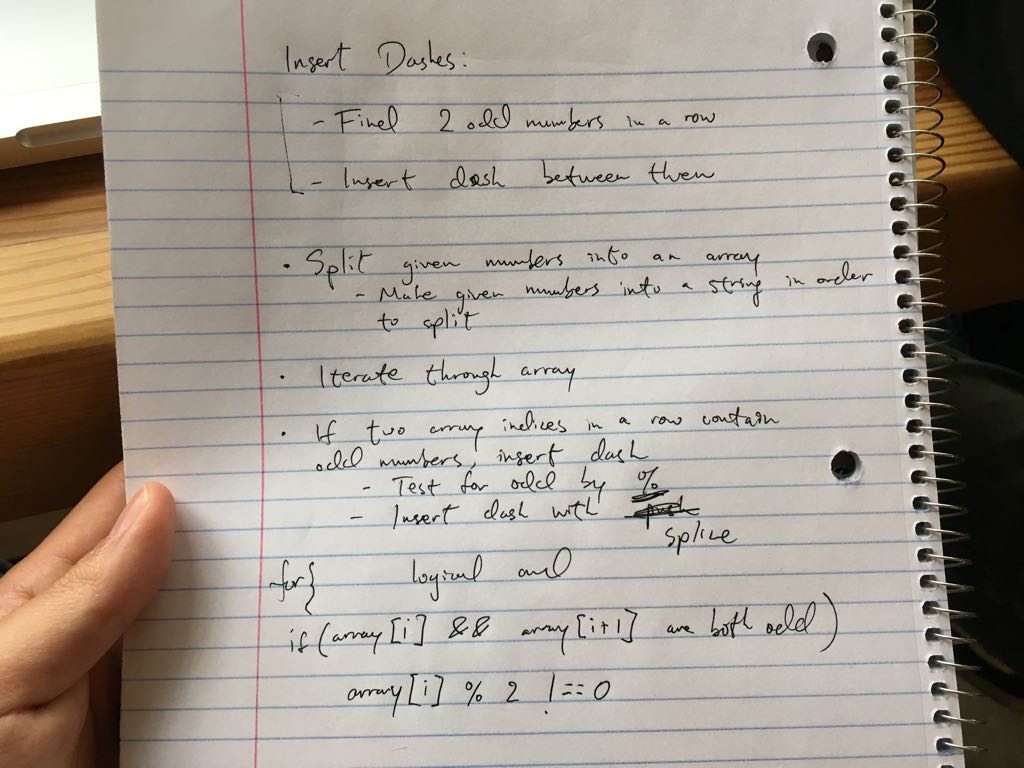 Insert Dashes:
- Find 2 odd numbers in a row
- Insert dash between them
• Split given numbers into an array
- Make given numbers into a string in order
to split
• Iterate through array
• If two array indices in a row contain
odd numbers, insert dash
- Test for odd by %
- Insert dash with push
splice
for{ logical and
if (array[i] && array[i+1] are both odd)
array[i] % 2 !== 0